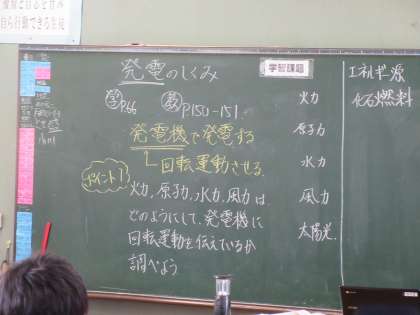 自ら行動できる生徒
発電のしくみ
学習課題
エネルギー源
学 P.66
教 P150-151
火力
化石燃料
発電機で発電する
原子力
回転運動させる
水力
ポイント1
火力、原子力、水力、風力は、
風力
どのようにして、発電機に
太陽光
回転運動を伝えているか
調べよう